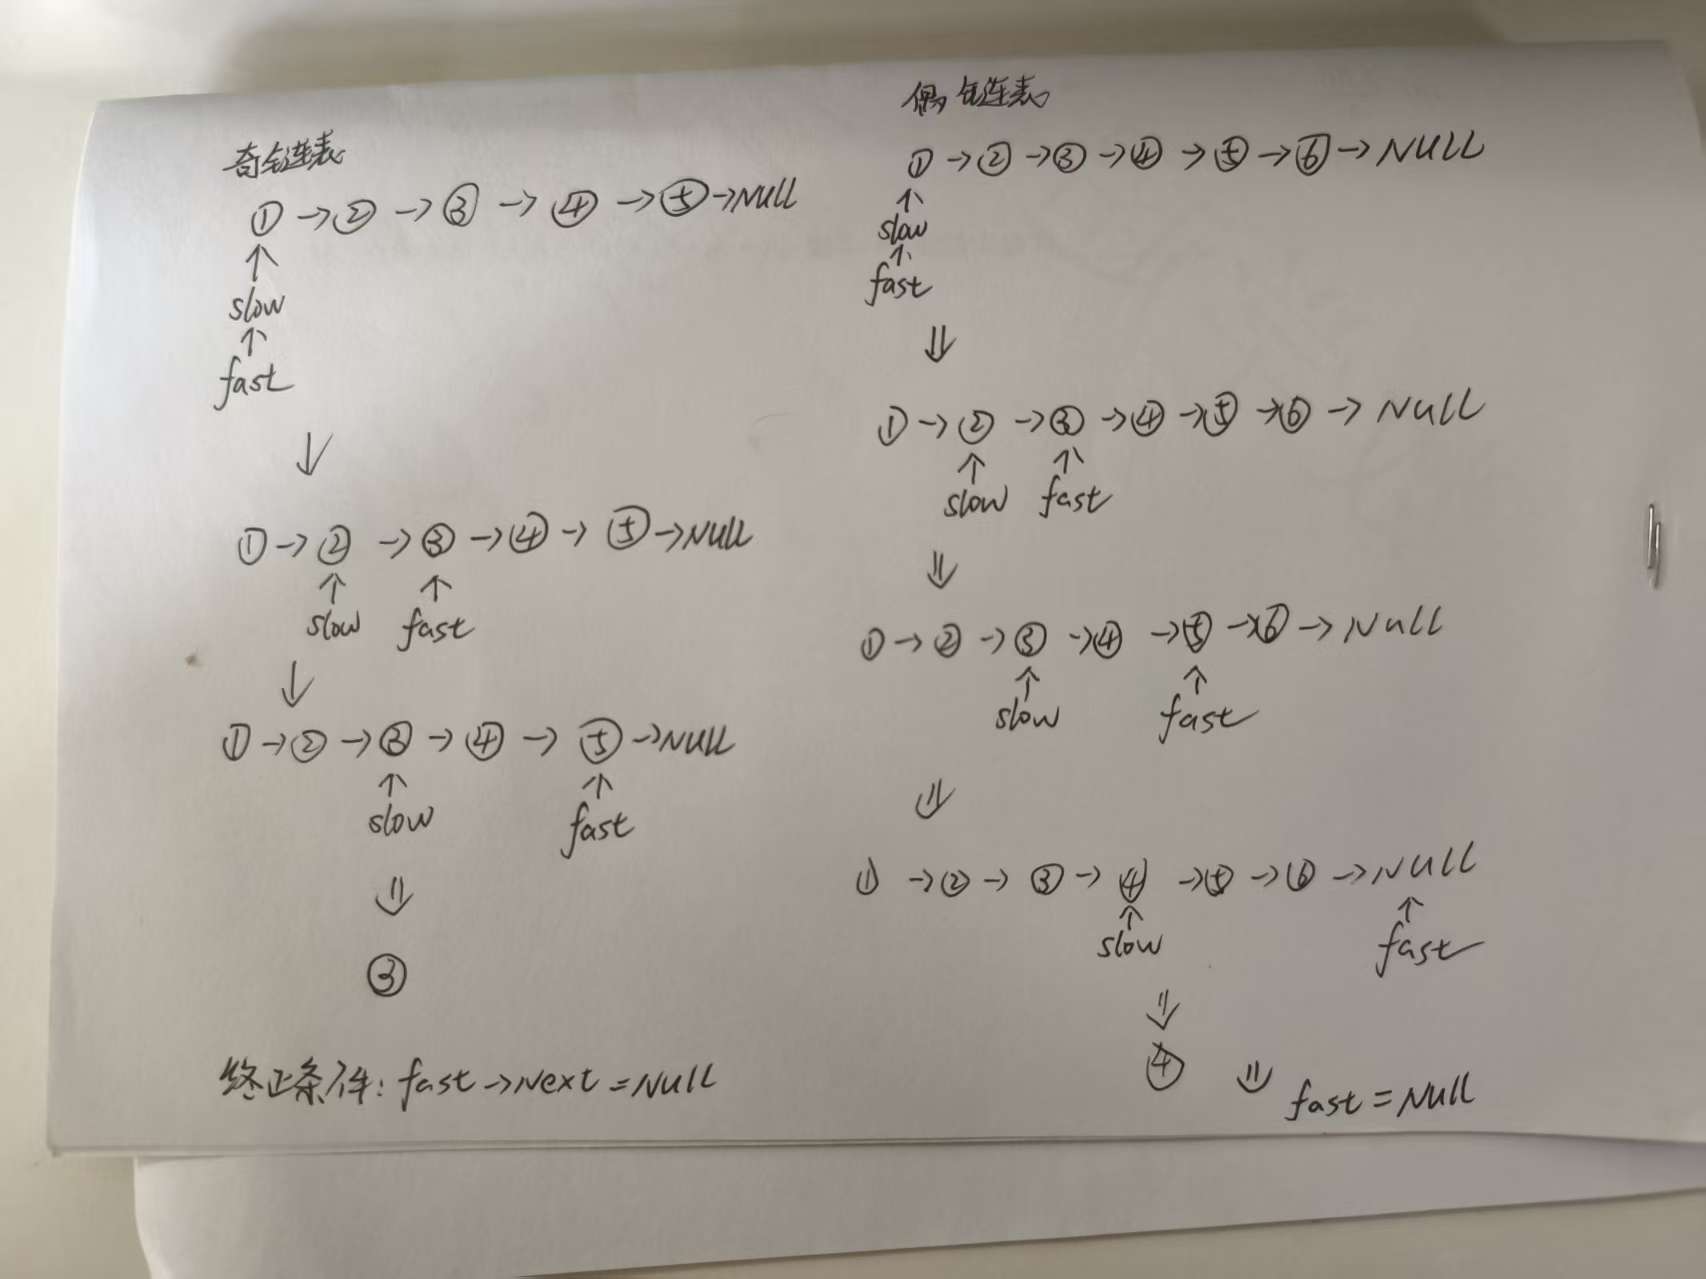 奇链表
①→②→③→④→⑤→NULL
↑
slow
↑
fast
↓
①→②→③→④→⑤→NULL
↑ ↑
slow fast
↓
①→②→③→④→⑤→NULL
↑ ↑
slow fast
⇓
③
终止条件：fast→Next=NULL
偶链表
①→②→③→④→⑤→⑥→NULL
↑
slow
↑
fast
⇓
①→②→③→④→⑤→⑥→NULL
↑ ↑
slow fast
⇓
①→②→③→④→⑤→⑥→NULL
↑ ↑
slow fast
⇓
①→②→③→④→⑤→⑥→NULL
↑ ↑
slow fast
⇓
④ ⇓
fast=NULL